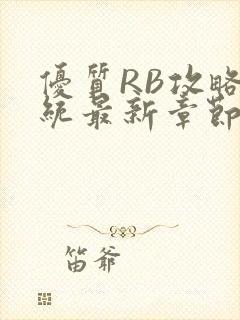 優質RB攻略
統最新章節
笛爷